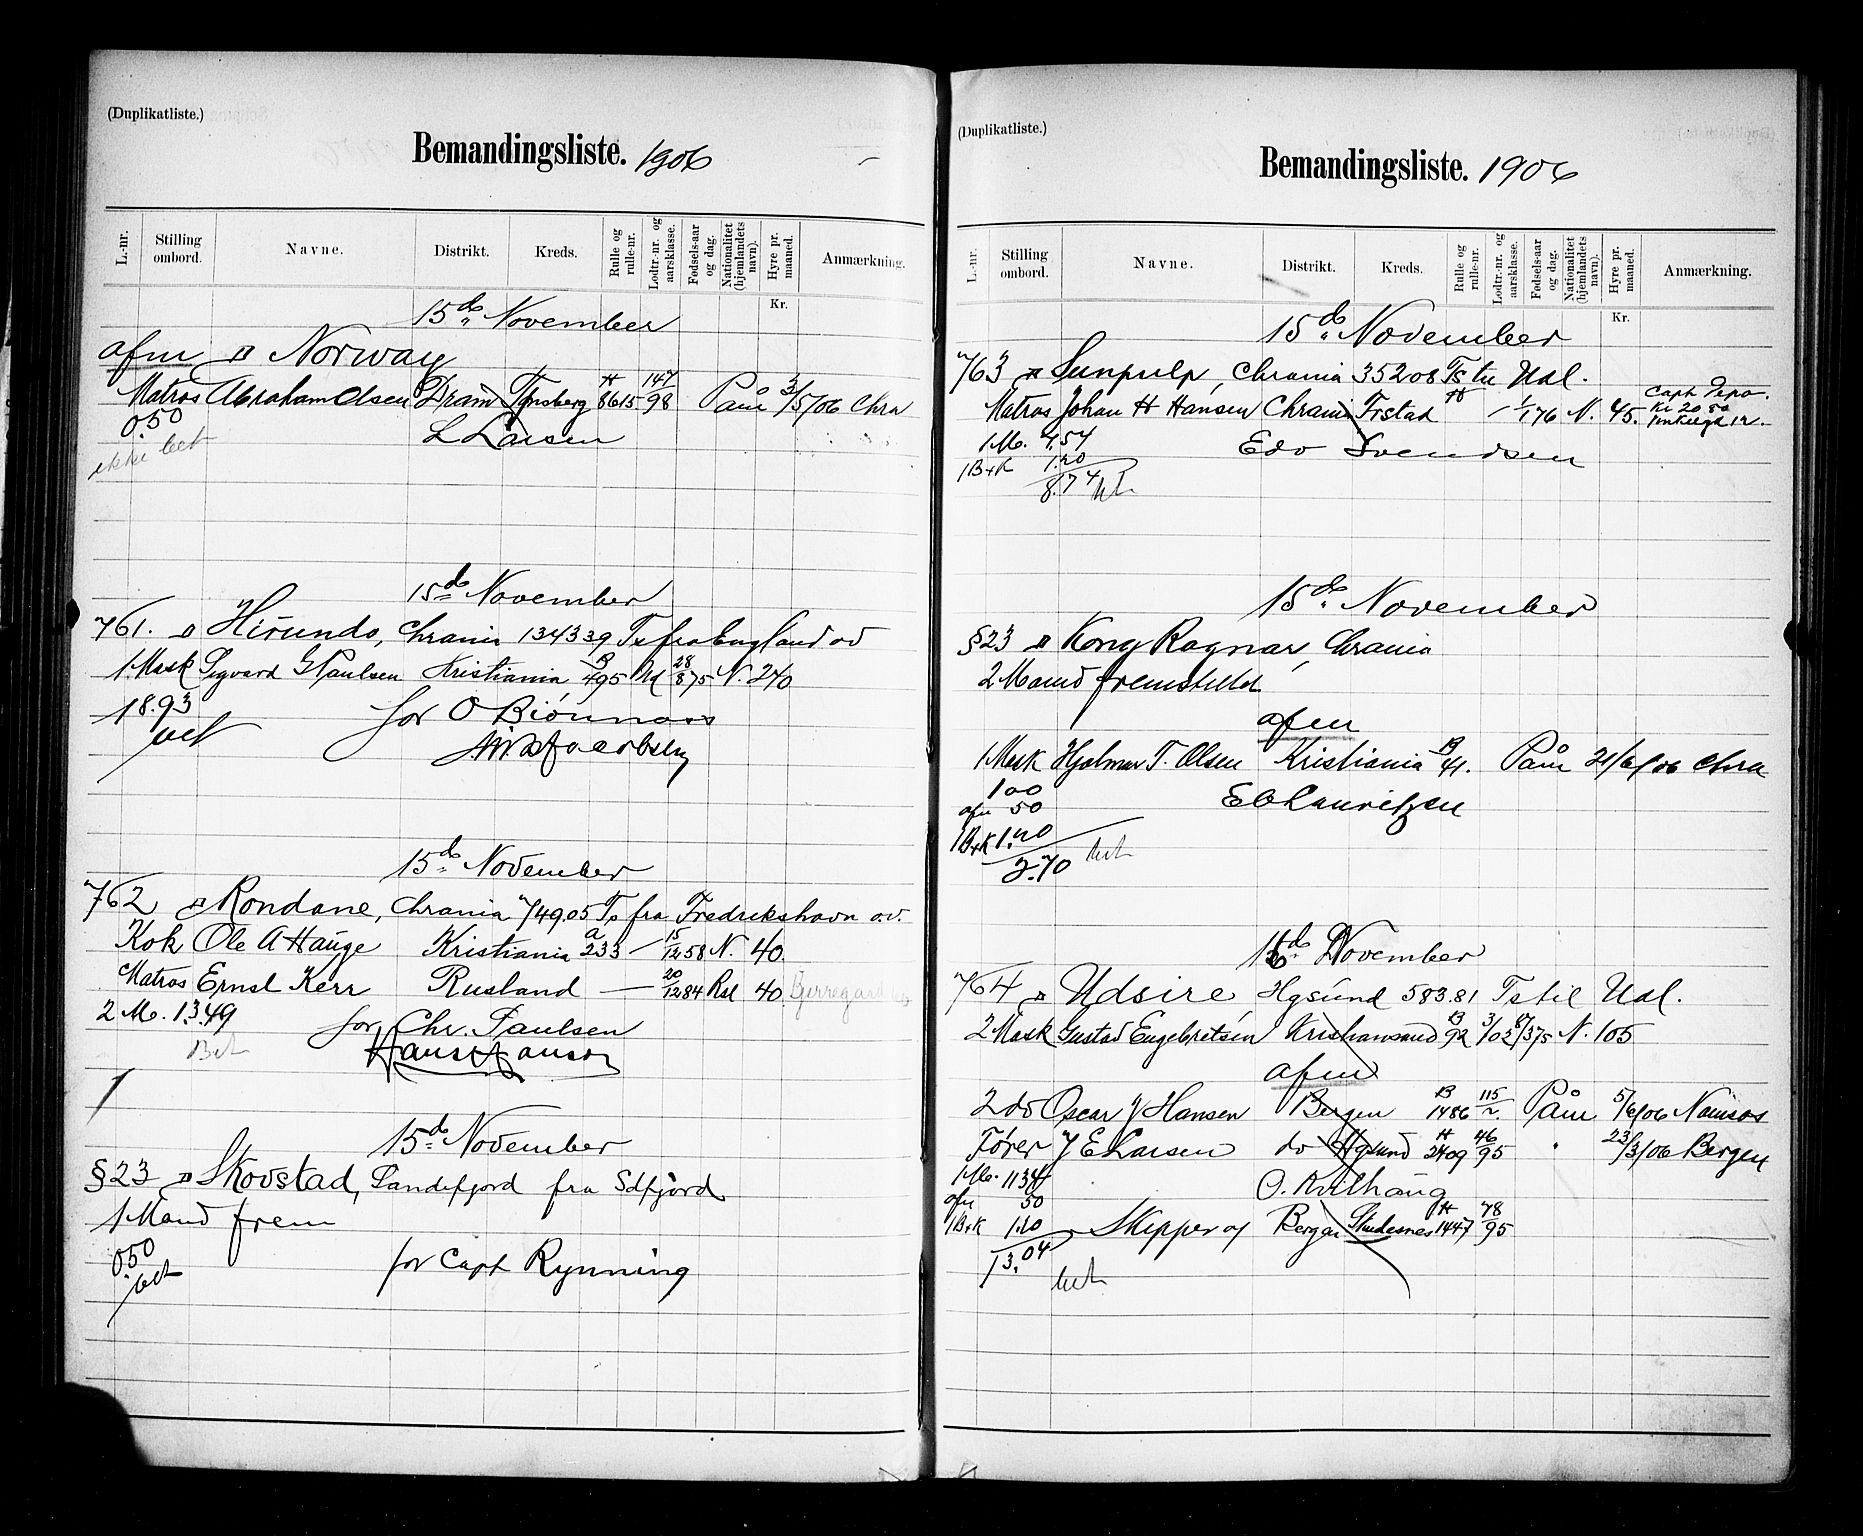 (Duplikatliste.)
Bemandingsliste. 1906
L.-nr. Stilling ombord. Navne. Distrikt. Kreds. Rulle og rulle-nr. Lodtr.-nr. og aarsklasse. Fødsels-aar og dag. Nationalitet (hjemlandets navn). Hyre pr. maaned. Anmærkning.
Kr.
15de November
afm D Norway
Matros Abraham Olsen Dram Tønsberg H 8615 147/98 Påm 3/5/06 Chra
0.50 L Larsen
ikke bet
15de November
761. D Hirundo, Chrania 1343 39 Ts fra England od
1 Mask Sigvard G Paulsen Kristiania B 495 28/8 75 N. 240
18.93 for O Biørnnæss
bet
15de November
762 D Rondane, Chrania 749.05 Ts fra Fredrikshavn o.v.
Kok Ole A Hauge Kristiania a 233 — 15/12 58 N. 40.
Matros Ernst Kerr Rusland — 20/12 84 Rsl 40
2 M. 13.49 for Chr. Paulsen
Bet Hans Hanson
15de November
§23 D Skovstad, Sandefjord fra Sdfjord
1 Mand frem
050 for Capt Rynning
bet
(Duplikatliste.)
Bemandingsliste. 1906
L.-nr. Stilling ombord. Navne. Distrikt. Kreds. Rulle og rulle-nr. Lodtr.-nr. og aarsklasse. Fødsels-aar og dag. Nationalitet (hjemlandets navn). Hyre pr. maaned. Anmærkning.
Kr.
15de November
763 D Sunpulp, Chrania 352 08 Ts til Udl.
Matros Johan H Hansen Chrania Frstad H — 1/1 76 N. 45. Capt Depo. Kr 20.50
1 M. 7.54 Edv Svendsen
1 B+K 1.20
8.74 bet
15de November
§23 D Kong Ragnar, Chrania
2 Mand fremstilld
afm
1 Mask Hjalmar T. Olsen Kristiania B 41. Påm 21/6/06 Chra
100 E C Lauritzen
afm 50
1 B+K 1.20
2.70 bet
15de November
764 D Udsire, Hgsund 583.81 Ts til Udl.
2 Mask Gustav Engebretsen Kristiansand B 92 3/02 17/3 75 N. 105
afm
2 do Oscar J Hansen Bergen B 1486 115/2. Påm 5/6/06 Namsos
Fører J E Larsen do Hgsund H 2409 46/95 " 23/3/06 Bergen
1 M. 1134 O. Kvilhaug
afm 50
1 B+K 1.20 Skipper af Bergen Skudesnes H 1447 78/95
13.04
bet